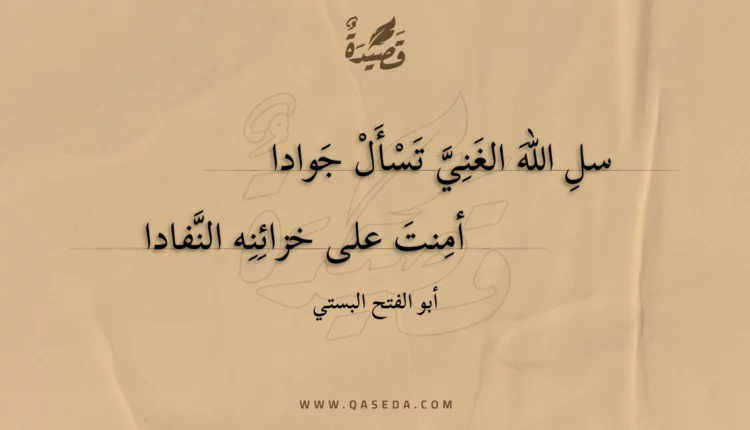 قَصِيدَةٌ
سلِ اللهَ الغَنِيَّ تَسْأَلْ جَوادا
أمِنتَ على خزائِنِه النَّفادا
أبو الفتح البستي
WWW.QASEDA.COM